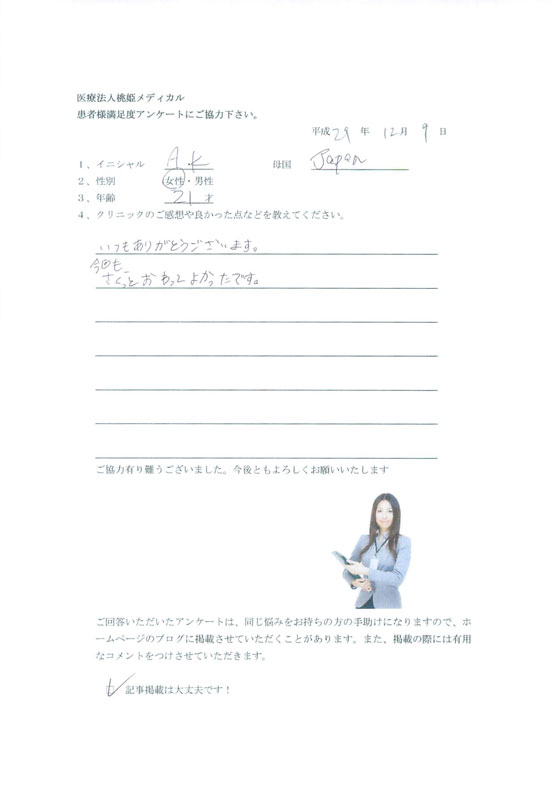 医療法人桃姫メディカル
患者様満足度アンケートにご協力下さい。
平成29年 12月 9日
1、イニシャル A.K 母国 Japan
2、性別 女性・男性
3、年齢 21 才
4、クリニックのご感想や良かった点などを教えてください。
いつもありがとうございます。
今回も
さくっとおわってよかったです。
ご協力有り難うございました。今後ともよろしくお願いいたします
ご回答いただいたアンケートは、同じ悩みをお持ちの方の手助けになりますので、ホ
ームページのブログに掲載させていただくことがあります。また、掲載の際には有用
なコメントをつけさせていただきます。
記事掲載は大丈夫です！